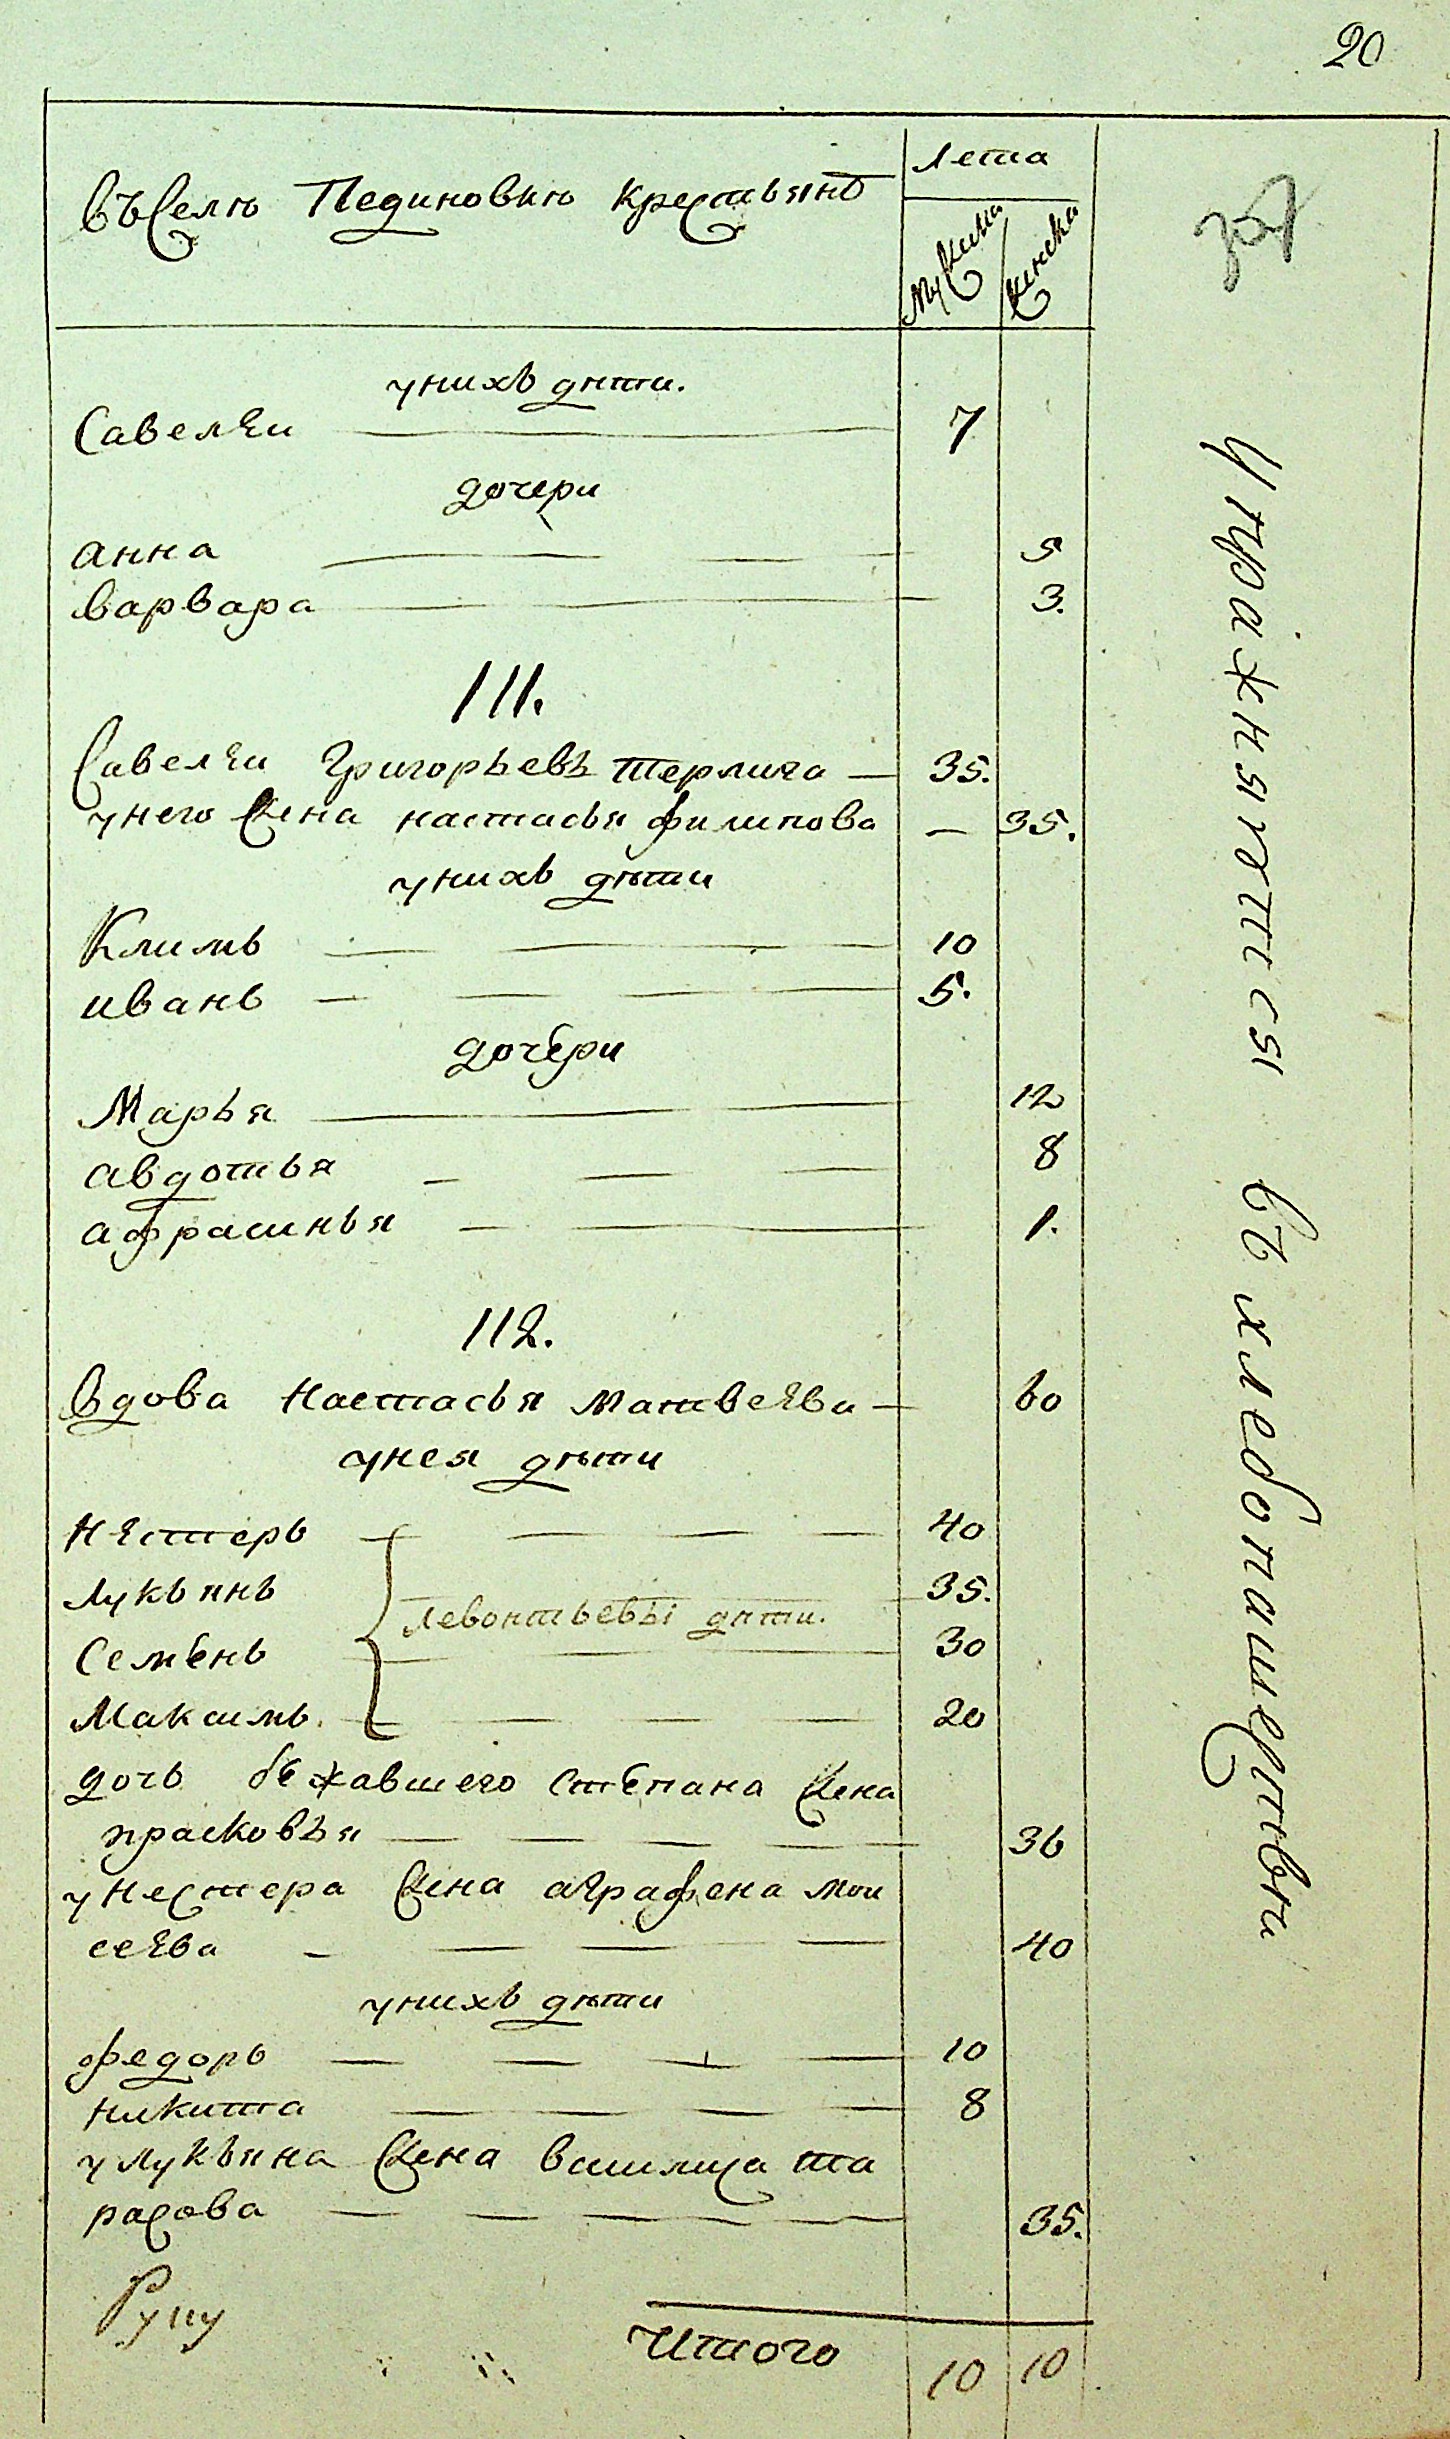 20
Лета
въ Селѣ Пединовкѣ крестьянъ
Мужска
женска
унихъ дѣти.
Савелеи 7
дочери
анна 5
варвара 3.
111.
Савелеи Григорьевъ терлига 35.
унего жена настасья филипова 35.
унихъ дѣти
Климъ 10
иванъ 5.
дочери
Марья 12
авдотья 8
афрасинья 1.
112.
вдова Настасья матвеева 60
унея дѣти
Нестеръ 40
Лукьянъ 35.
левонтьевы дѣти.
Семенъ 30
Максимъ 20
дочь бежавшего степана жена
прасковья 36
унестера жена аграфена мои
сеева 40
унихъ дѣти
федоръ 10
никита 8
улукьяна жена василиса та
расова 35.
Руку
Итого 10 10
Упражняэтся въ хлебопашествѣ